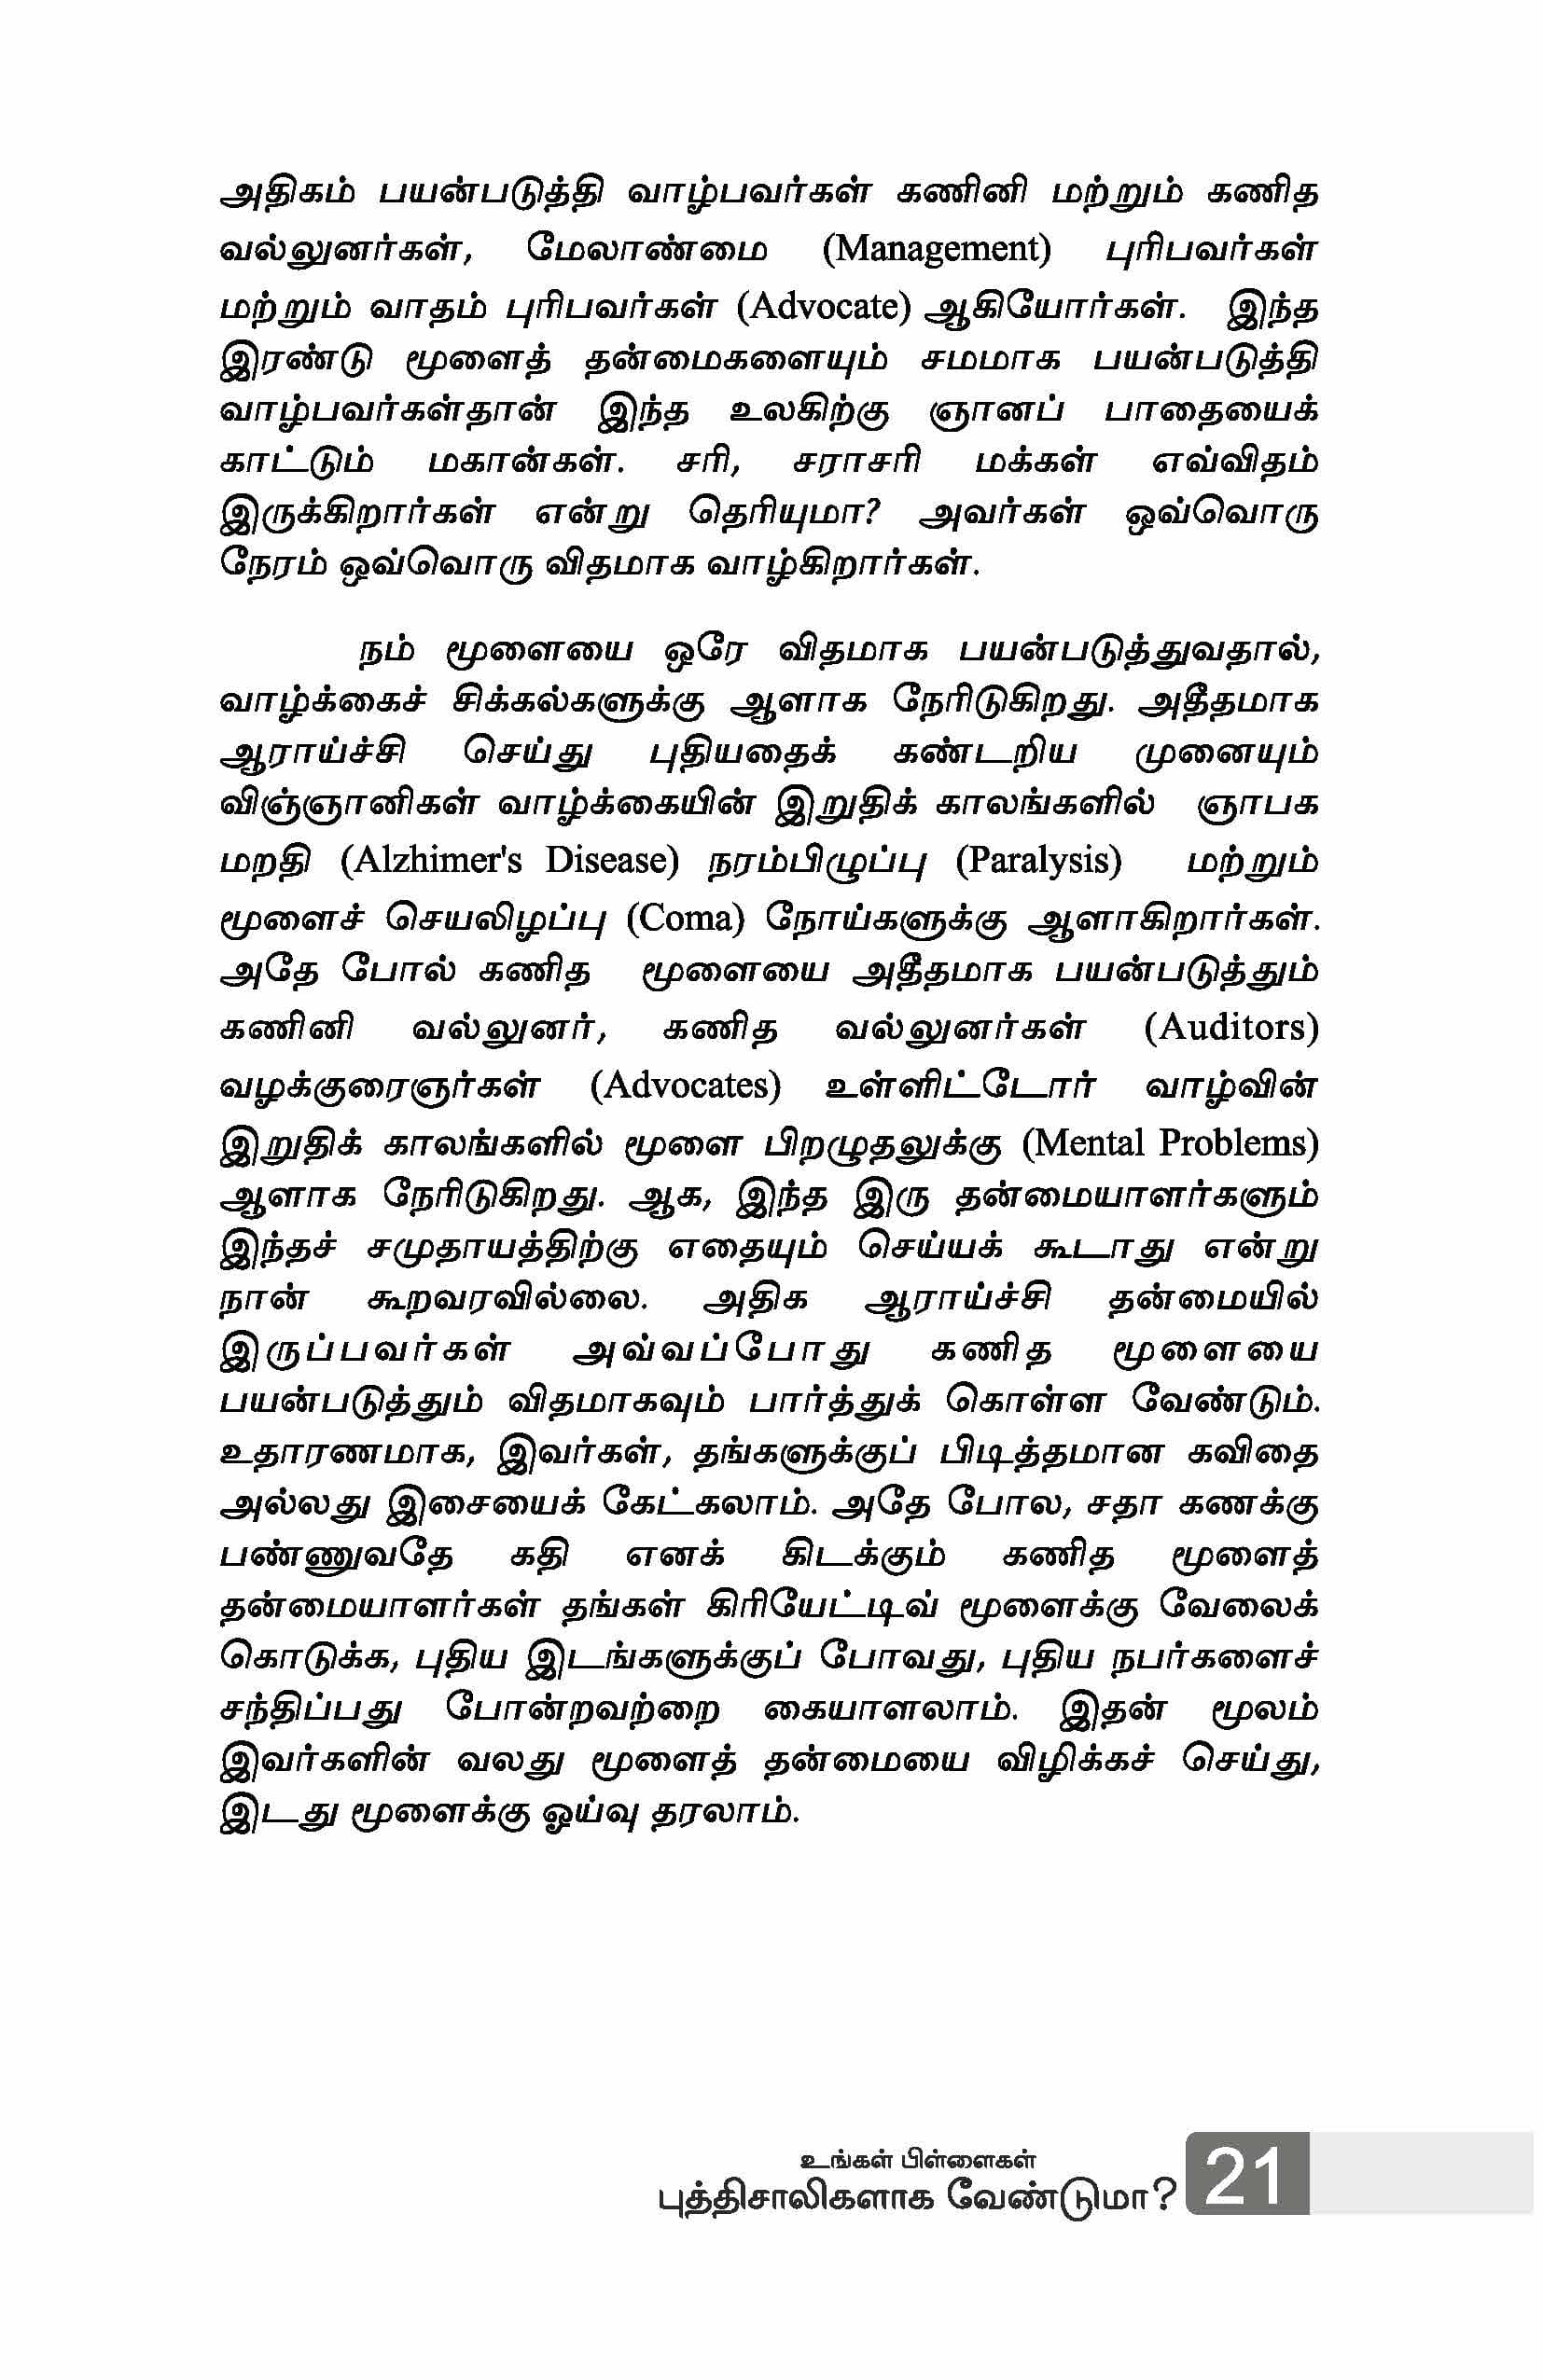 அதிகம் பயன்படுத்தி வாழ்பவர்கள் கணினி மற்றும் கணித
வல்லுனர்கள், மேலாண்மை (Management) புரிபவர்கள்
மற்றும் வாதம் புரிபவர்கள் (Advocate) ஆகியோர்கள். இந்த
இரண்டு மூளைத் தன்மைகளையும் சமமாக பயன்படுத்தி
வாழ்பவர்கள்தான் இந்த உலகிற்கு ஞானப் பாதையைக்
காட்டும் மகான்கள். சரி, சராசரி மக்கள் எவ்விதம்
இருக்கிறார்கள் என்று தெரியுமா? அவர்கள் ஒவ்வொரு
நேரம் ஒவ்வொரு விதமாக வாழ்கிறார்கள்.
நம் மூளையை ஒரே விதமாக பயன்படுத்துவதால்,
வாழ்க்கைச் சிக்கல்களுக்கு ஆளாக நேரிடுகிறது. அதீதமாக
ஆராய்ச்சி செய்து புதியதைக் கண்டறிய முனையும்
விஞ்ஞானிகள் வாழ்க்கையின் இறுதிக் காலங்களில் ஞாபக
மறதி (Alzhimer's Disease) நரம்பிழுப்பு (Paralysis) மற்றும்
மூளைச் செயலிழப்பு (Coma) நோய்களுக்கு ஆளாகிறார்கள்.
அதே போல் கணித மூளையை அதீதமாக பயன்படுத்தும்
கணினி வல்லுனர், கணித வல்லுனர்கள் (Auditors)
வழக்குரைஞர்கள் (Advocates) உள்ளிட்டோர் வாழ்வின்
இறுதிக் காலங்களில் மூளை பிறழுதலுக்கு (Mental Problems)
ஆளாக நேரிடுகிறது. ஆக, இந்த இரு தன்மையாளர்களும்
இந்தச் சமுதாயத்திற்கு எதையும் செய்யக் கூடாது என்று
நான் கூறவரவில்லை. அதிக ஆராய்ச்சி தன்மையில்
இருப்பவர்கள் அவ்வப்போது கணித மூளையை
பயன்படுத்தும் விதமாகவும் பார்த்துக் கொள்ள வேண்டும்.
உதாரணமாக, இவர்கள், தங்களுக்குப் பிடித்தமான கவிதை
அல்லது இசையைக் கேட்கலாம். அதே போல, சதா கணக்கு
பண்ணுவதே கதி எனக் கிடக்கும் கணித மூளைத்
தன்மையாளர்கள் தங்கள் கிரியேட்டிவ் மூளைக்கு வேலைக்
கொடுக்க, புதிய இடங்களுக்குப் போவது, புதிய நபர்களைச்
சந்திப்பது போன்றவற்றை கையாளலாம். இதன் மூலம்
இவர்களின் வலது மூளைத் தன்மையை விழிக்கச் செய்து,
இடது மூளைக்கு ஓய்வு தரலாம்.
உங்கள் பிள்ளைகள்
புத்திசாலிகளாக வேண்டுமா?
21